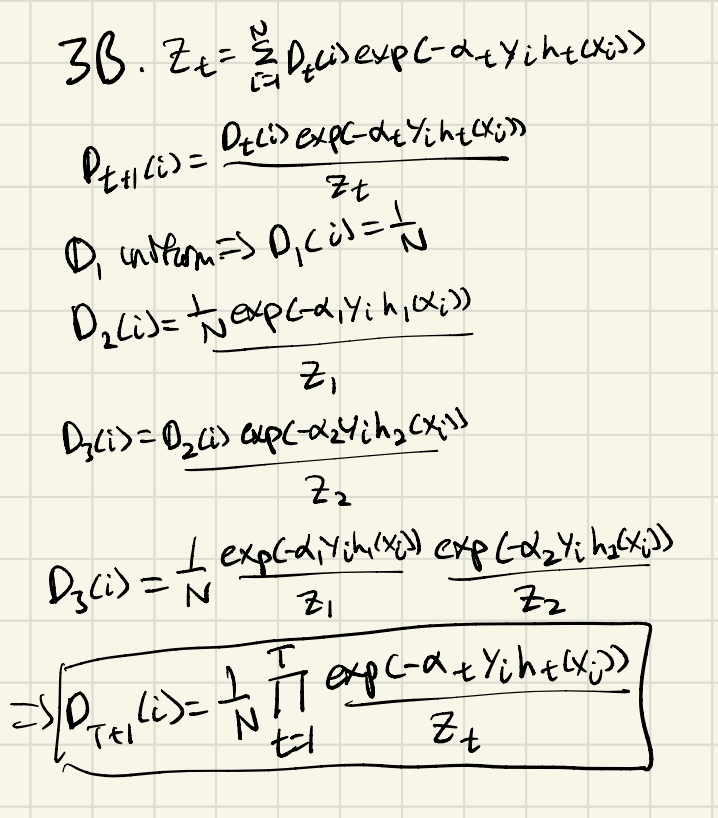 3B. Z_t = Σ_{i=1}^{N} D_t(i) exp(-α_t y_i h_t(x_i))
D_{t+1}(i) = D_t(i) exp(-α_t y_i h_t(x_i)) / Z_t
D_1 uniform ⇒ D_1(i) = 1/N
D_2(i) = 1/N exp(-α_1 y_i h_1(x_i)) / Z_1
D_3(i) = D_2(i) exp(-α_2 y_i h_2(x_i)) / Z_2
D_3(i) = 1/N exp(-α_1 y_i h_1(x_i)) / Z_1 exp(-α_2 y_i h_2(x_i)) / Z_2
⇒ D_{T+1}(i) = 1/N ∏_{t=1}^{T} exp(-α_t y_i h_t(x_i)) / Z_t